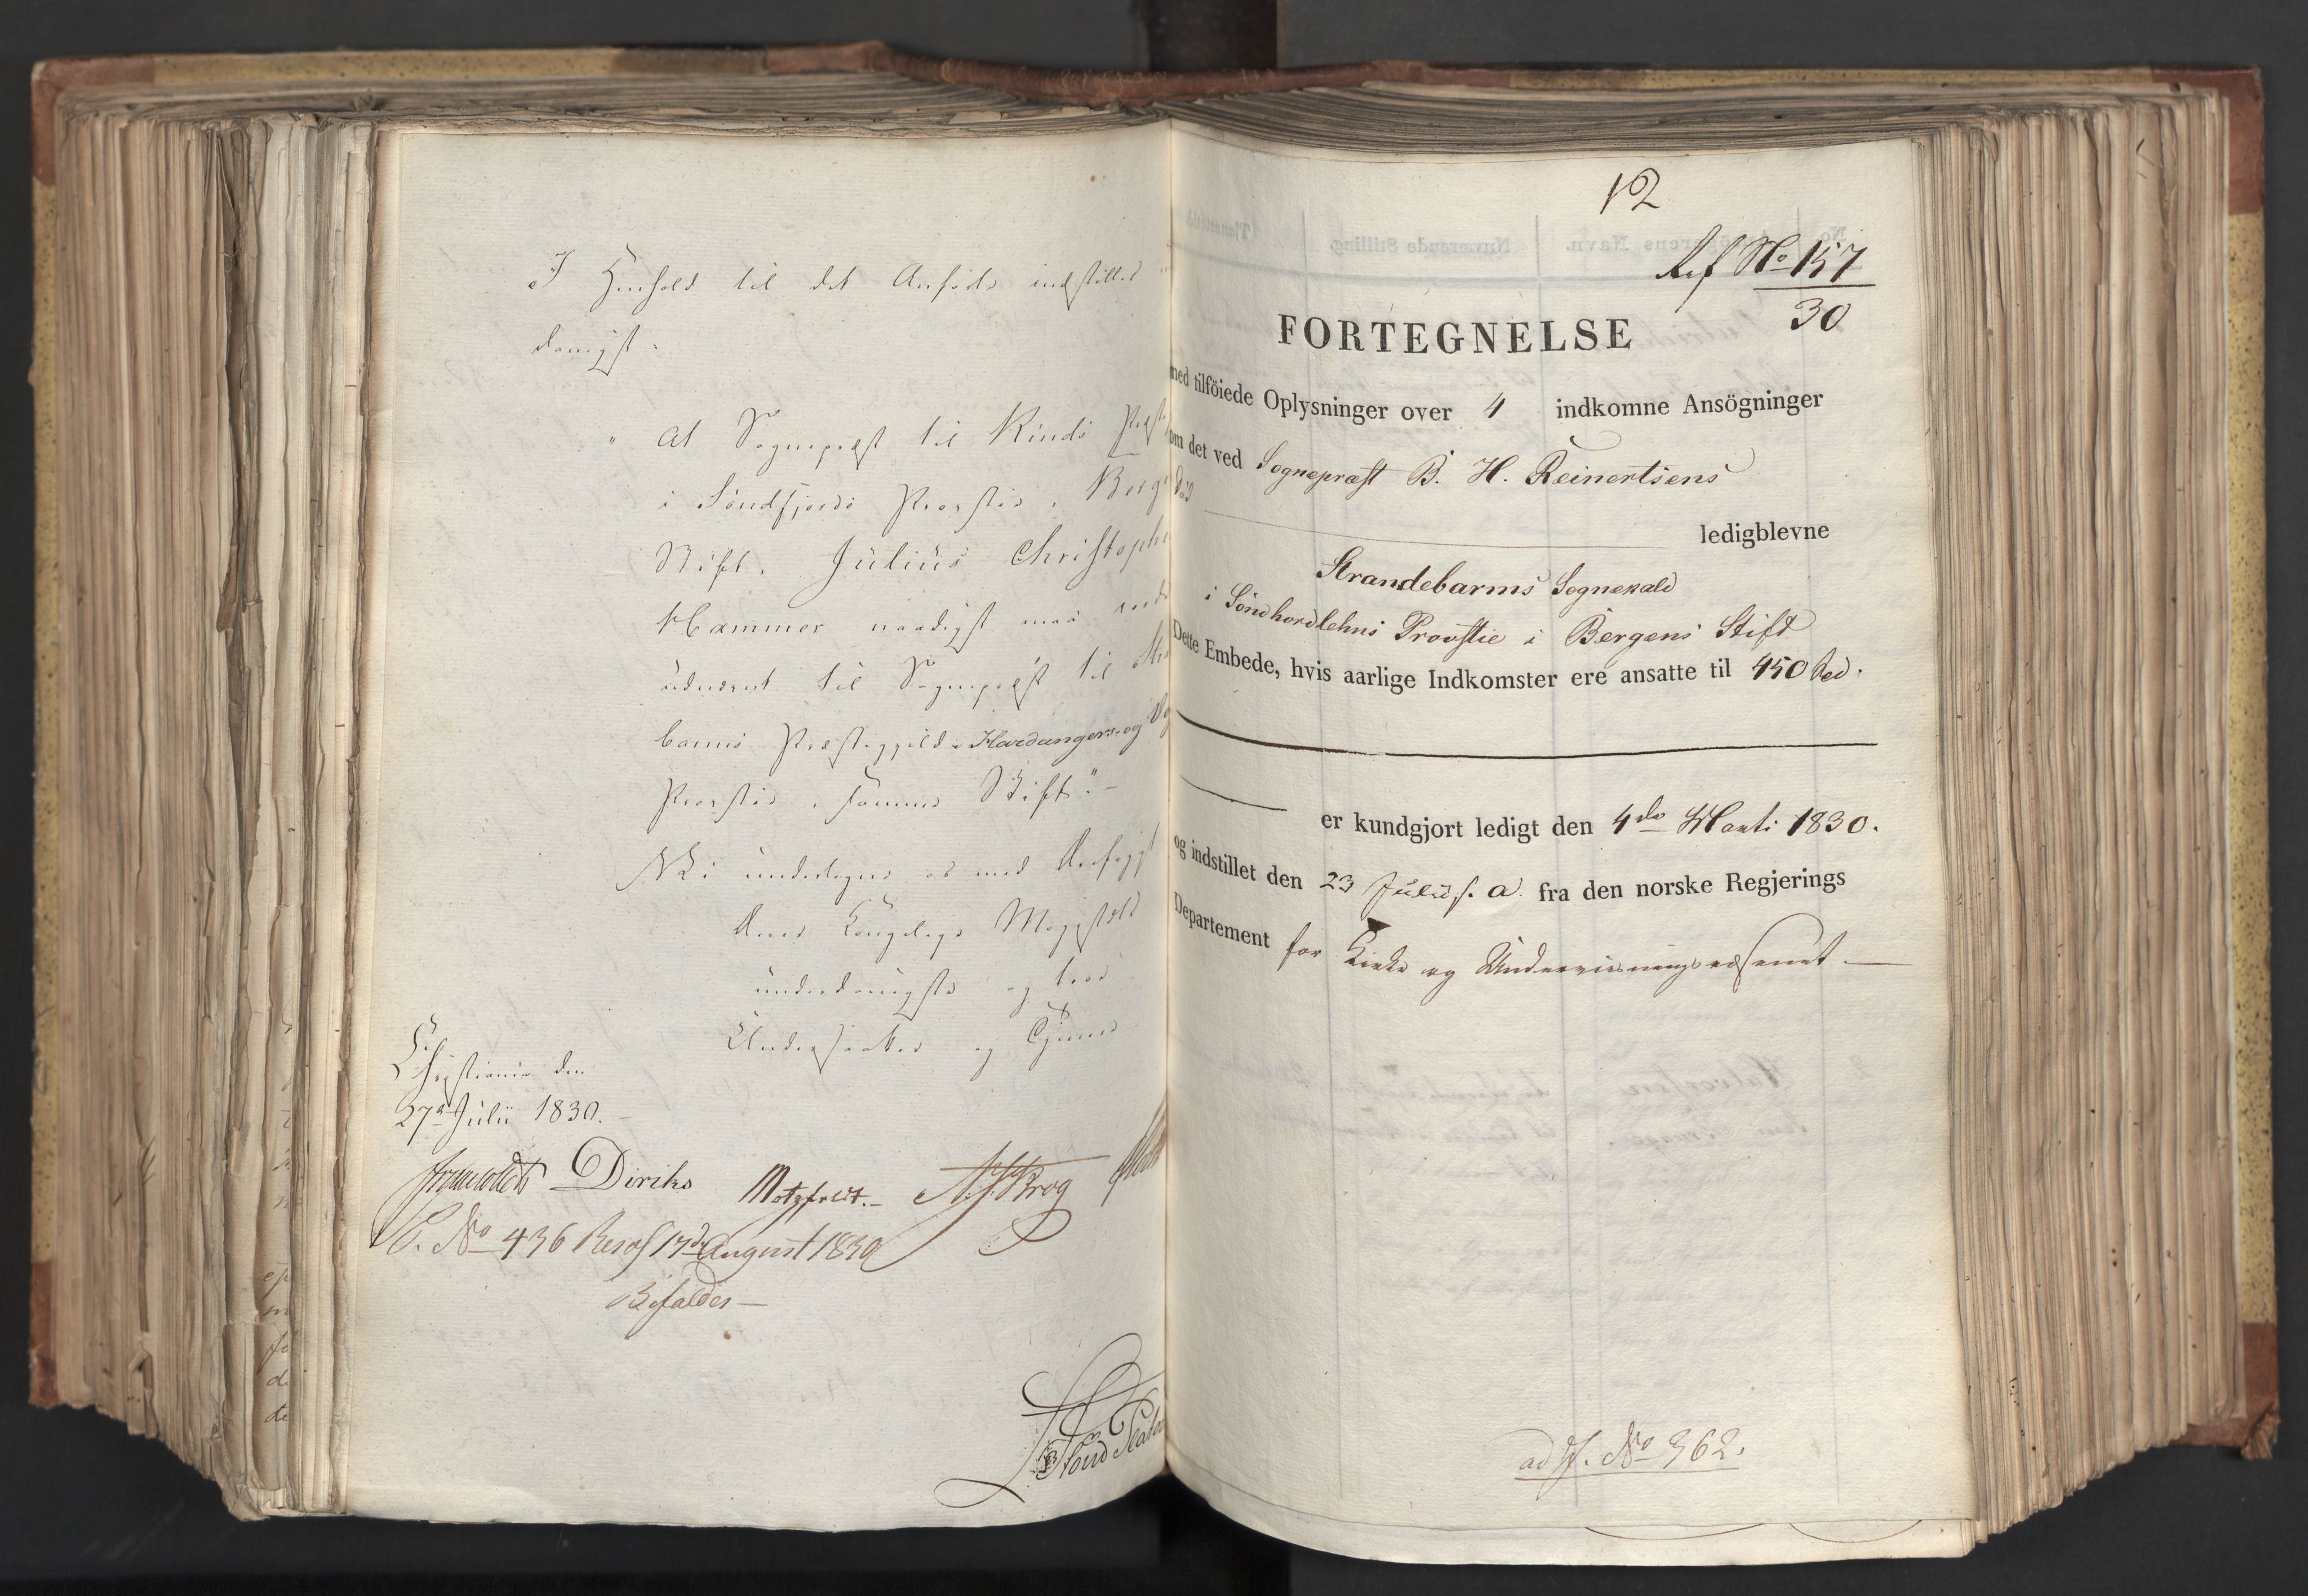 I Henhold til det Anførte indstilles
danigst:
" At Sognepræst til Kinds Præste
i Søndfjords Provstie, Berg
Stift, Julius Christophe
Hammer naadigst maa vorde
udnævnt til Sognepræst til Stra
barms Præstegjeld i Hardangers og Vo
Provstie i samme Stift." –
Vi undertegne os med Dybeste
Deres Kongelige Majestæts
underdanigste og troe
Undersaatter og Tjenere
Christiania den
27de Julii 1830. –
Diriks Motzfeldt. – Krog
P. No 436 Resol 17de August 1830
Bifaldes –
12
Ref No 157
30
FORTEGNELSE
med tilföiede Oplysninger over 4 indkomne Ansögninger
om det ved Sognepræst B. H. Reinertsens
Død
ledigblevne
Strandebarms Sognekald
i Søndhordlehns Provstie i Bergens Stift
Dette Embede, hvis aarlige Indkomster ere ansatte til 450 Spd.
er kundgjort ledigt den 4de Marti 1830.
og indstillet den 23 Juli s. a. fra den norske Regjerings
Departement for Kirke og Underviisningsvæsenet. –
ad J. No 362.